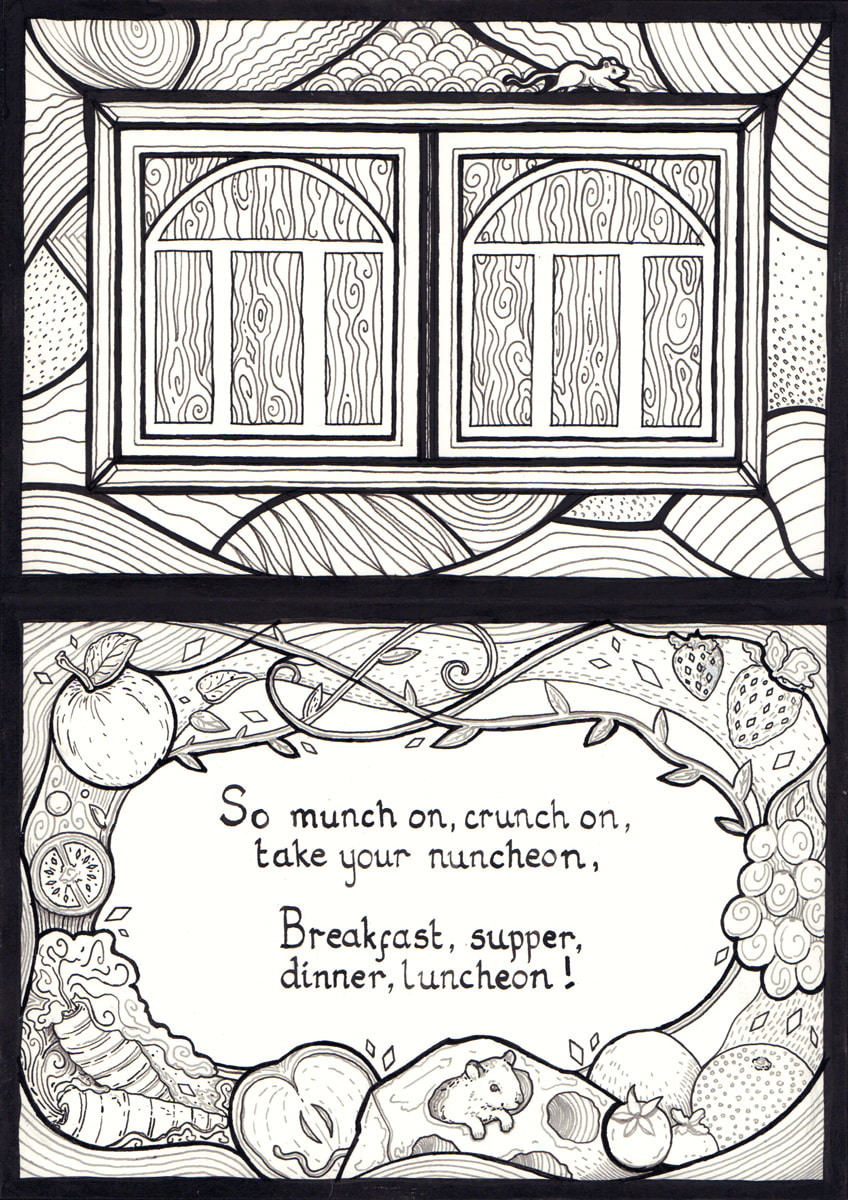 So munch on, crunch on,
take your nuncheon,
Breakfast, supper,
dinner, luncheon!